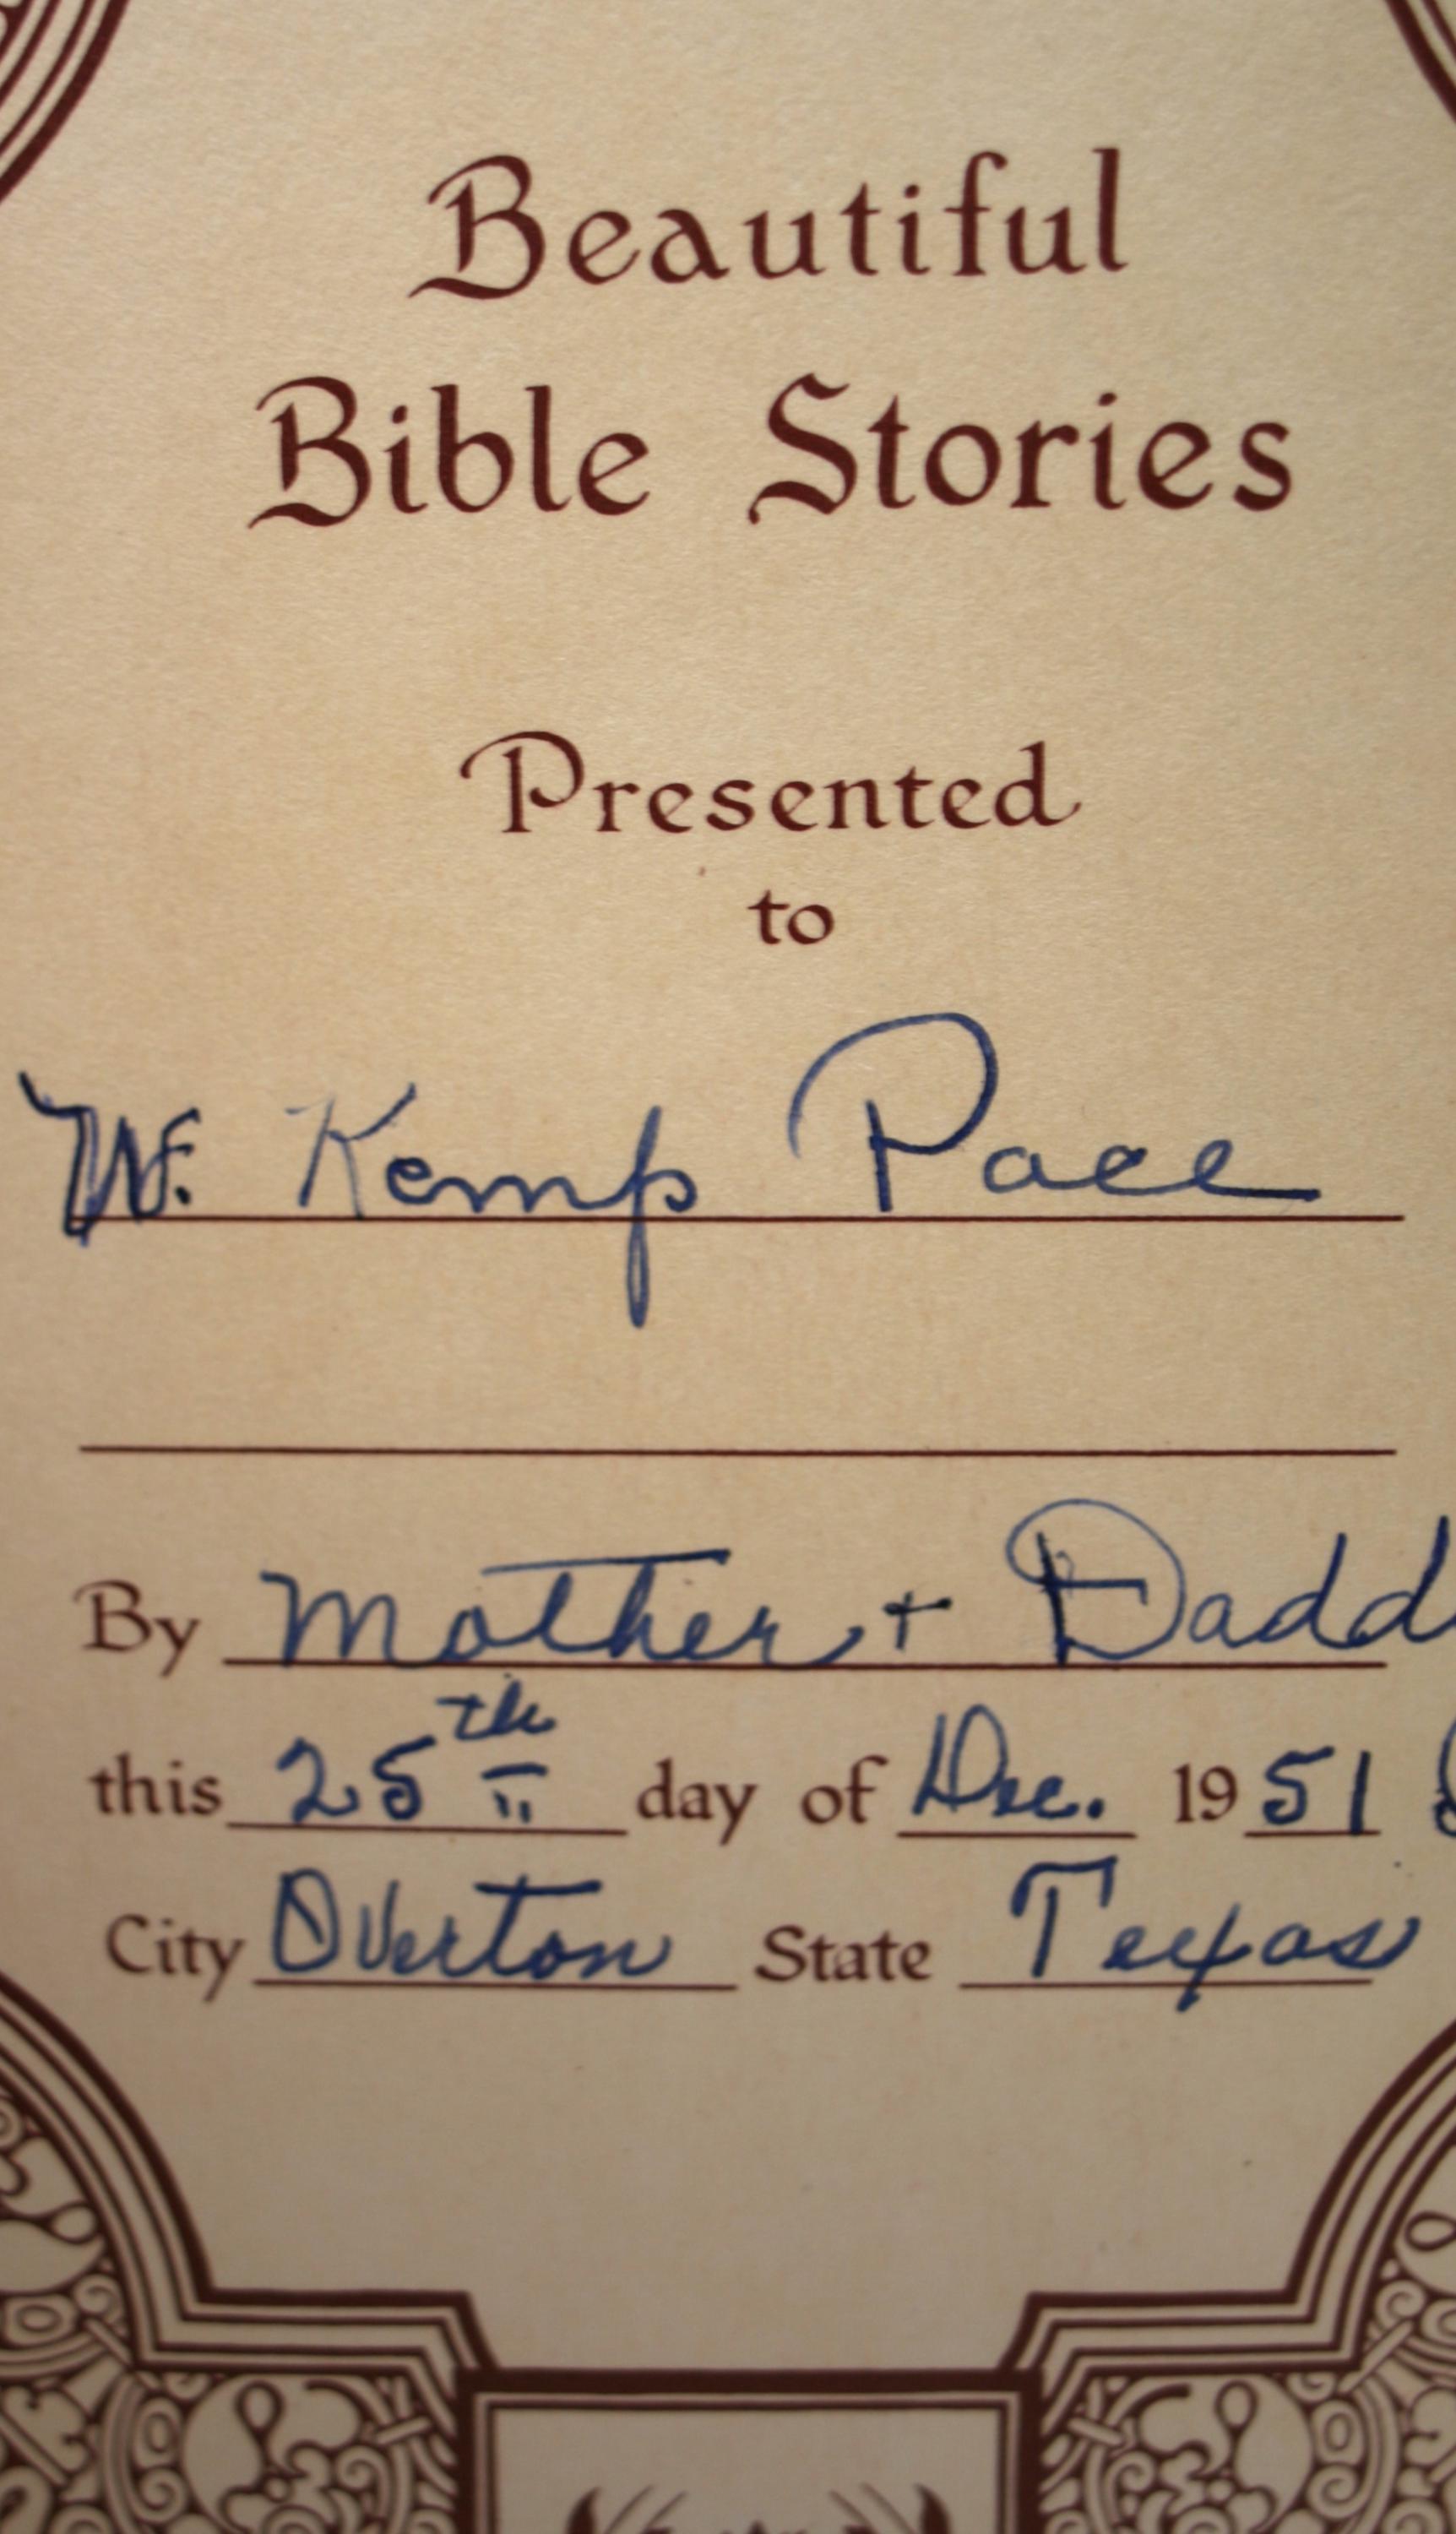 Beautiful
Bible Stories
Presented
to
W. Kemp Pace
By Mother + Dadd
this 25th day of Dec. 1951
City Overton State Texas